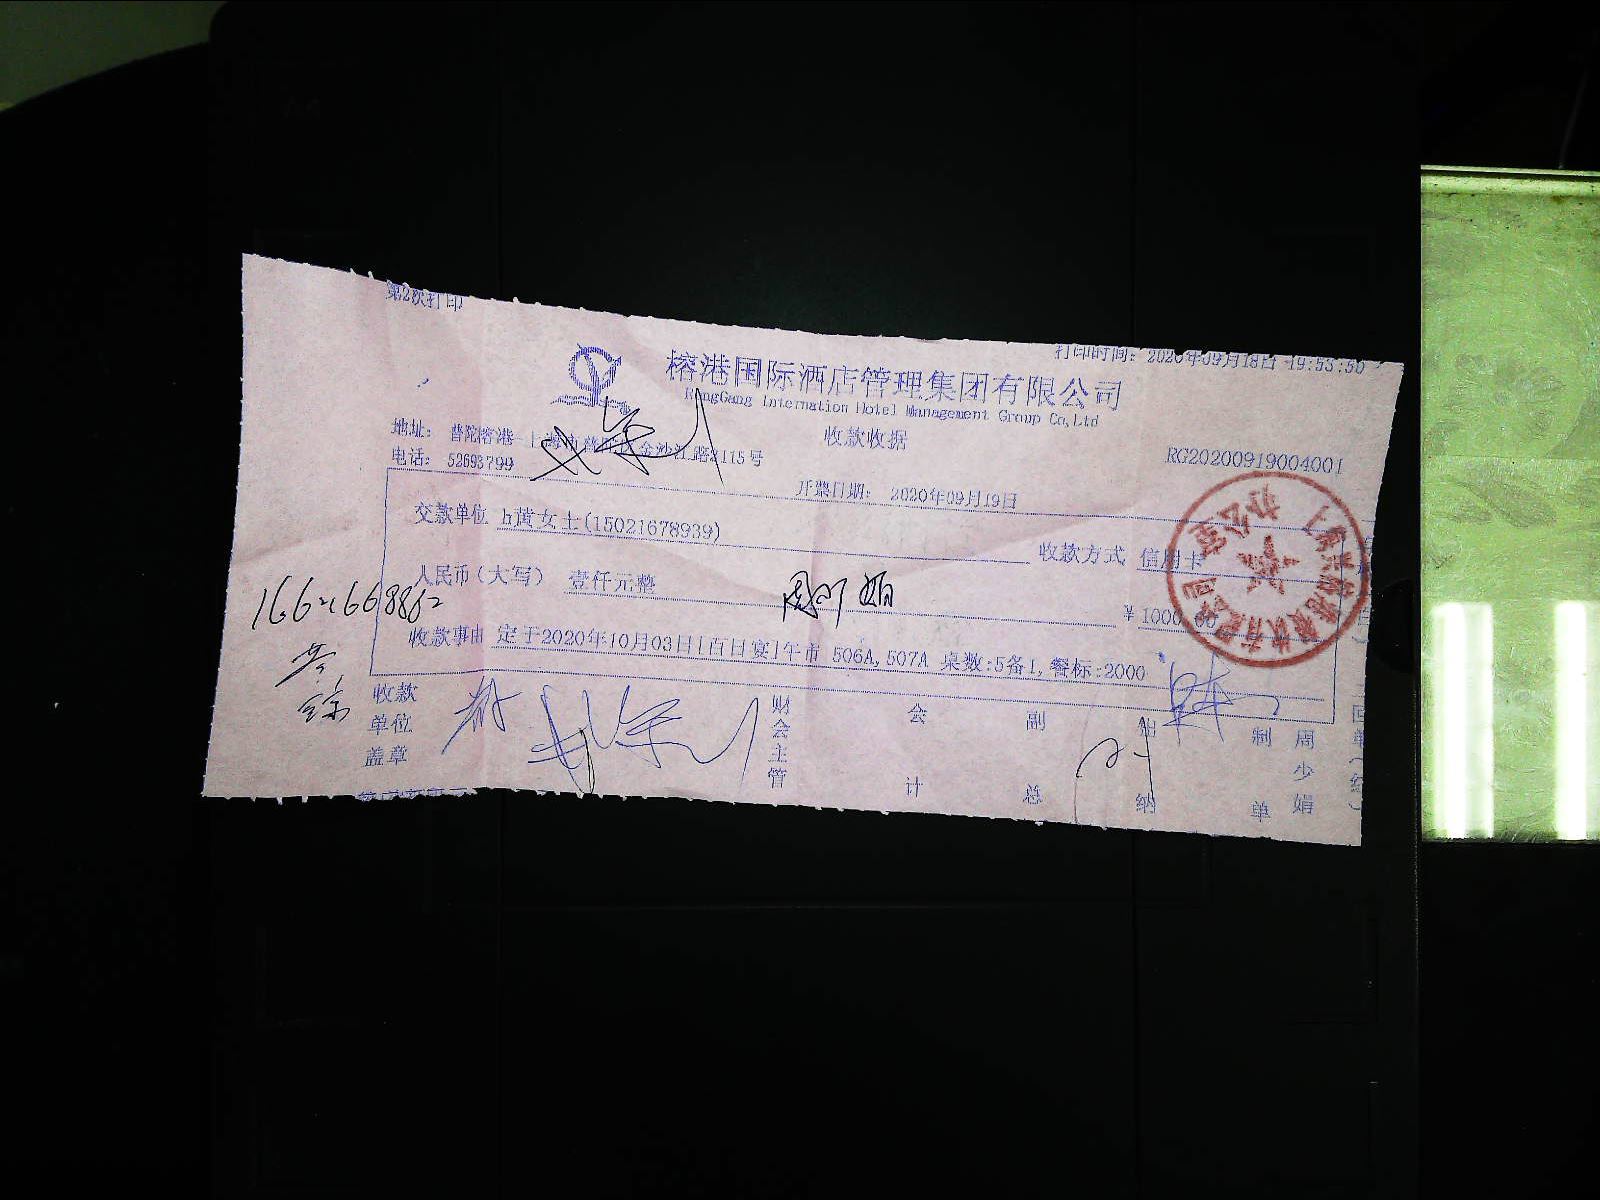 第2次打印
打印时间: 2020年09月18日 19:53:50
榕港国际酒店管理集团有限公司
RongGang Internation Hotel Management Group Co,Ltd
收款收据
地址: 普陀榕港--上海市普陀区金沙江路2115号
电话: 52693799
RG20200919004001
开票日期: 2020年09月19日
交款单位 h黄女士(15021678939)
收款方式 信用卡
人民币(大写) 壹仟元整
周少娟
¥ 1000.00
收款事由 定于2020年10月03日[百日宴]午市 506A,507A 桌数:5备1,餐标:2000
收款单位盖章
财会主管
会计
副总
出纳
制单
周少娟
办公室